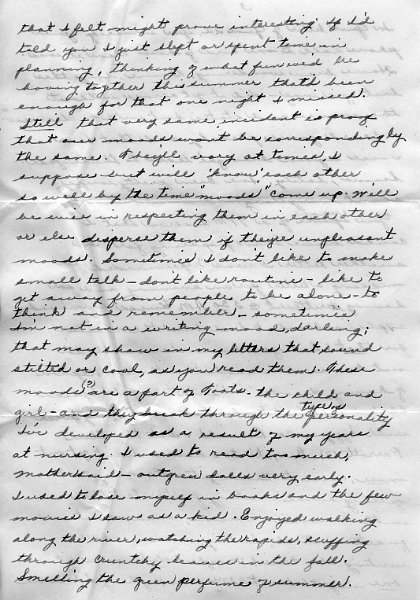 that I felt might prove interesting. If I'd
told you I just slept or spent time in
planning, thinking of what fun we'd be
having together this summer that'd been
enough for that one night I missed.
Still that very same incident is proof
that our moods won't be correspondingly
the same. They'll vary at times, I
suppose - but will "know" each other
so well by the time "moods" come up. Will
be wise in respecting them in each other
or else disperse them if they're unpleasant
moods. Sometimes I don't like to make
small talk - don't like routine - like to
get away from people to be alone - to
think and remember - sometimes
I'm not in a writing mood, darling;
that may show in my letters that sound
stilted or cool, as you read them. These
moods (?) are a part of Toots - the child and
girl - and they break through the type of personality
I've developed as a result of my years
at nursing. I used to read too much,
mother said - outgrew dolls very early.
I used to lose myself in books and the few
movies I saw as a kid. Enjoyed walking
along the river, watching the rapids, scuffing
through crunchy leaves in the fall.
Smelling the green perfume of summer.